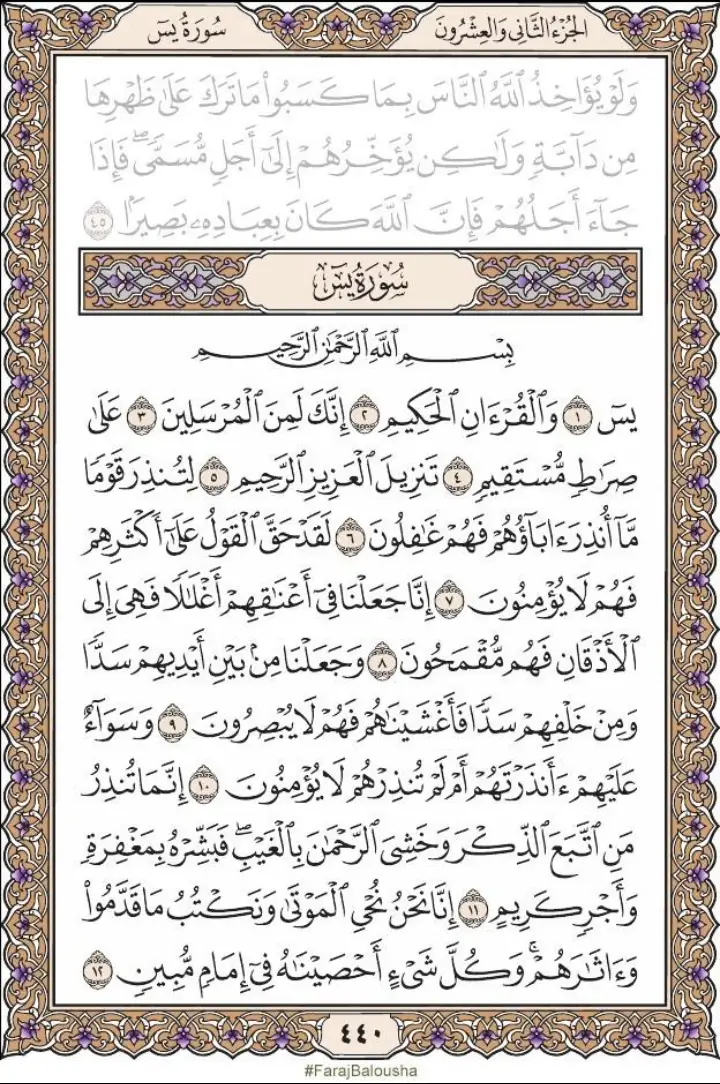 الجُزْءُ الثَّانِي وَالعِشْرُونَ
سُورَةُ يسٓ
وَلَوۡ يُؤَاخِذُ ٱللَّهُ ٱلنَّاسَ بِمَا كَسَبُواْ مَا تَرَكَ عَلَىٰ ظَهۡرِهَا
مِن دَآبَّةٖ وَلَٰكِن يُؤَخِّرُهُمۡ إِلَىٰٓ أَجَلٖ مُّسَمّٗىۖ فَإِذَا
جَآءَ أَجَلُهُمۡ فَإِنَّ ٱللَّهَ كَانَ بِعِبَادِهِۦ بَصِيرَۢا ٤٥
سُورَةُ يسٓ
بِسۡمِ ٱللَّهِ ٱلرَّحۡمَٰنِ ٱلرَّحِيمِ
يسٓ ١ وَٱلۡقُرۡءَانِ ٱلۡحَكِيمِ ٢ إِنَّكَ لَمِنَ ٱلۡمُرۡسَلِينَ ٣ عَلَىٰ
صِرَٰطٖ مُّسۡتَقِيمٖ ٤ تَنزِيلَ ٱلۡعَزِيزِ ٱلرَّحِيمِ ٥ لِتُنذِرَ قَوۡمٗا
مَّآ أُنذِرَ ءَابَآؤُهُمۡ فَهُمۡ غَٰفِلُونَ ٦ لَقَدۡ حَقَّ ٱلۡقَوۡلُ عَلَىٰٓ أَكۡثَرِهِمۡ
فَهُمۡ لَا يُؤۡمِنُونَ ٧ إِنَّا جَعَلۡنَا فِيٓ أَعۡنَٰقِهِمۡ أَغۡلَٰلٗا فَهِيَ إِلَى
ٱلۡأَذۡقَانِ فَهُم مُّقۡمَحُونَ ٨ وَجَعَلۡنَا مِنۢ بَيۡنِ أَيۡدِيهِمۡ سَدّٗا
وَمِنۡ خَلۡفِهِمۡ سَدّٗا فَأَغۡشَيۡنَٰهُمۡ فَهُمۡ لَا يُبۡصِرُونَ ٩ وَسَوَآءٌ
عَلَيۡهِمۡ ءَأَنذَرۡتَهُمۡ أَمۡ لَمۡ تُنذِرۡهُمۡ لَا يُؤۡمِنُونَ ١٠ إِنَّمَا تُنذِرُ
مَنِ ٱتَّبَعَ ٱلذِّكۡرَ وَخَشِيَ ٱلرَّحۡمَٰنَ بِٱلۡغَيۡبِۖ فَبَشِّرۡهُ بِمَغۡفِرَةٖ
وَأَجۡرٖ كَرِيمٍ ١١ إِنَّا نَحۡنُ نُحۡيِ ٱلۡمَوۡتَىٰ وَنَكۡتُبُ مَا قَدَّمُواْ
وَءَاثَٰرَهُمۡۚ وَكُلَّ شَيۡءٍ أَحۡصَيۡنَٰهُ فِيٓ إِمَامٖ مُّبِينٖ ١٢
٤٤٠
#FarajBalousha